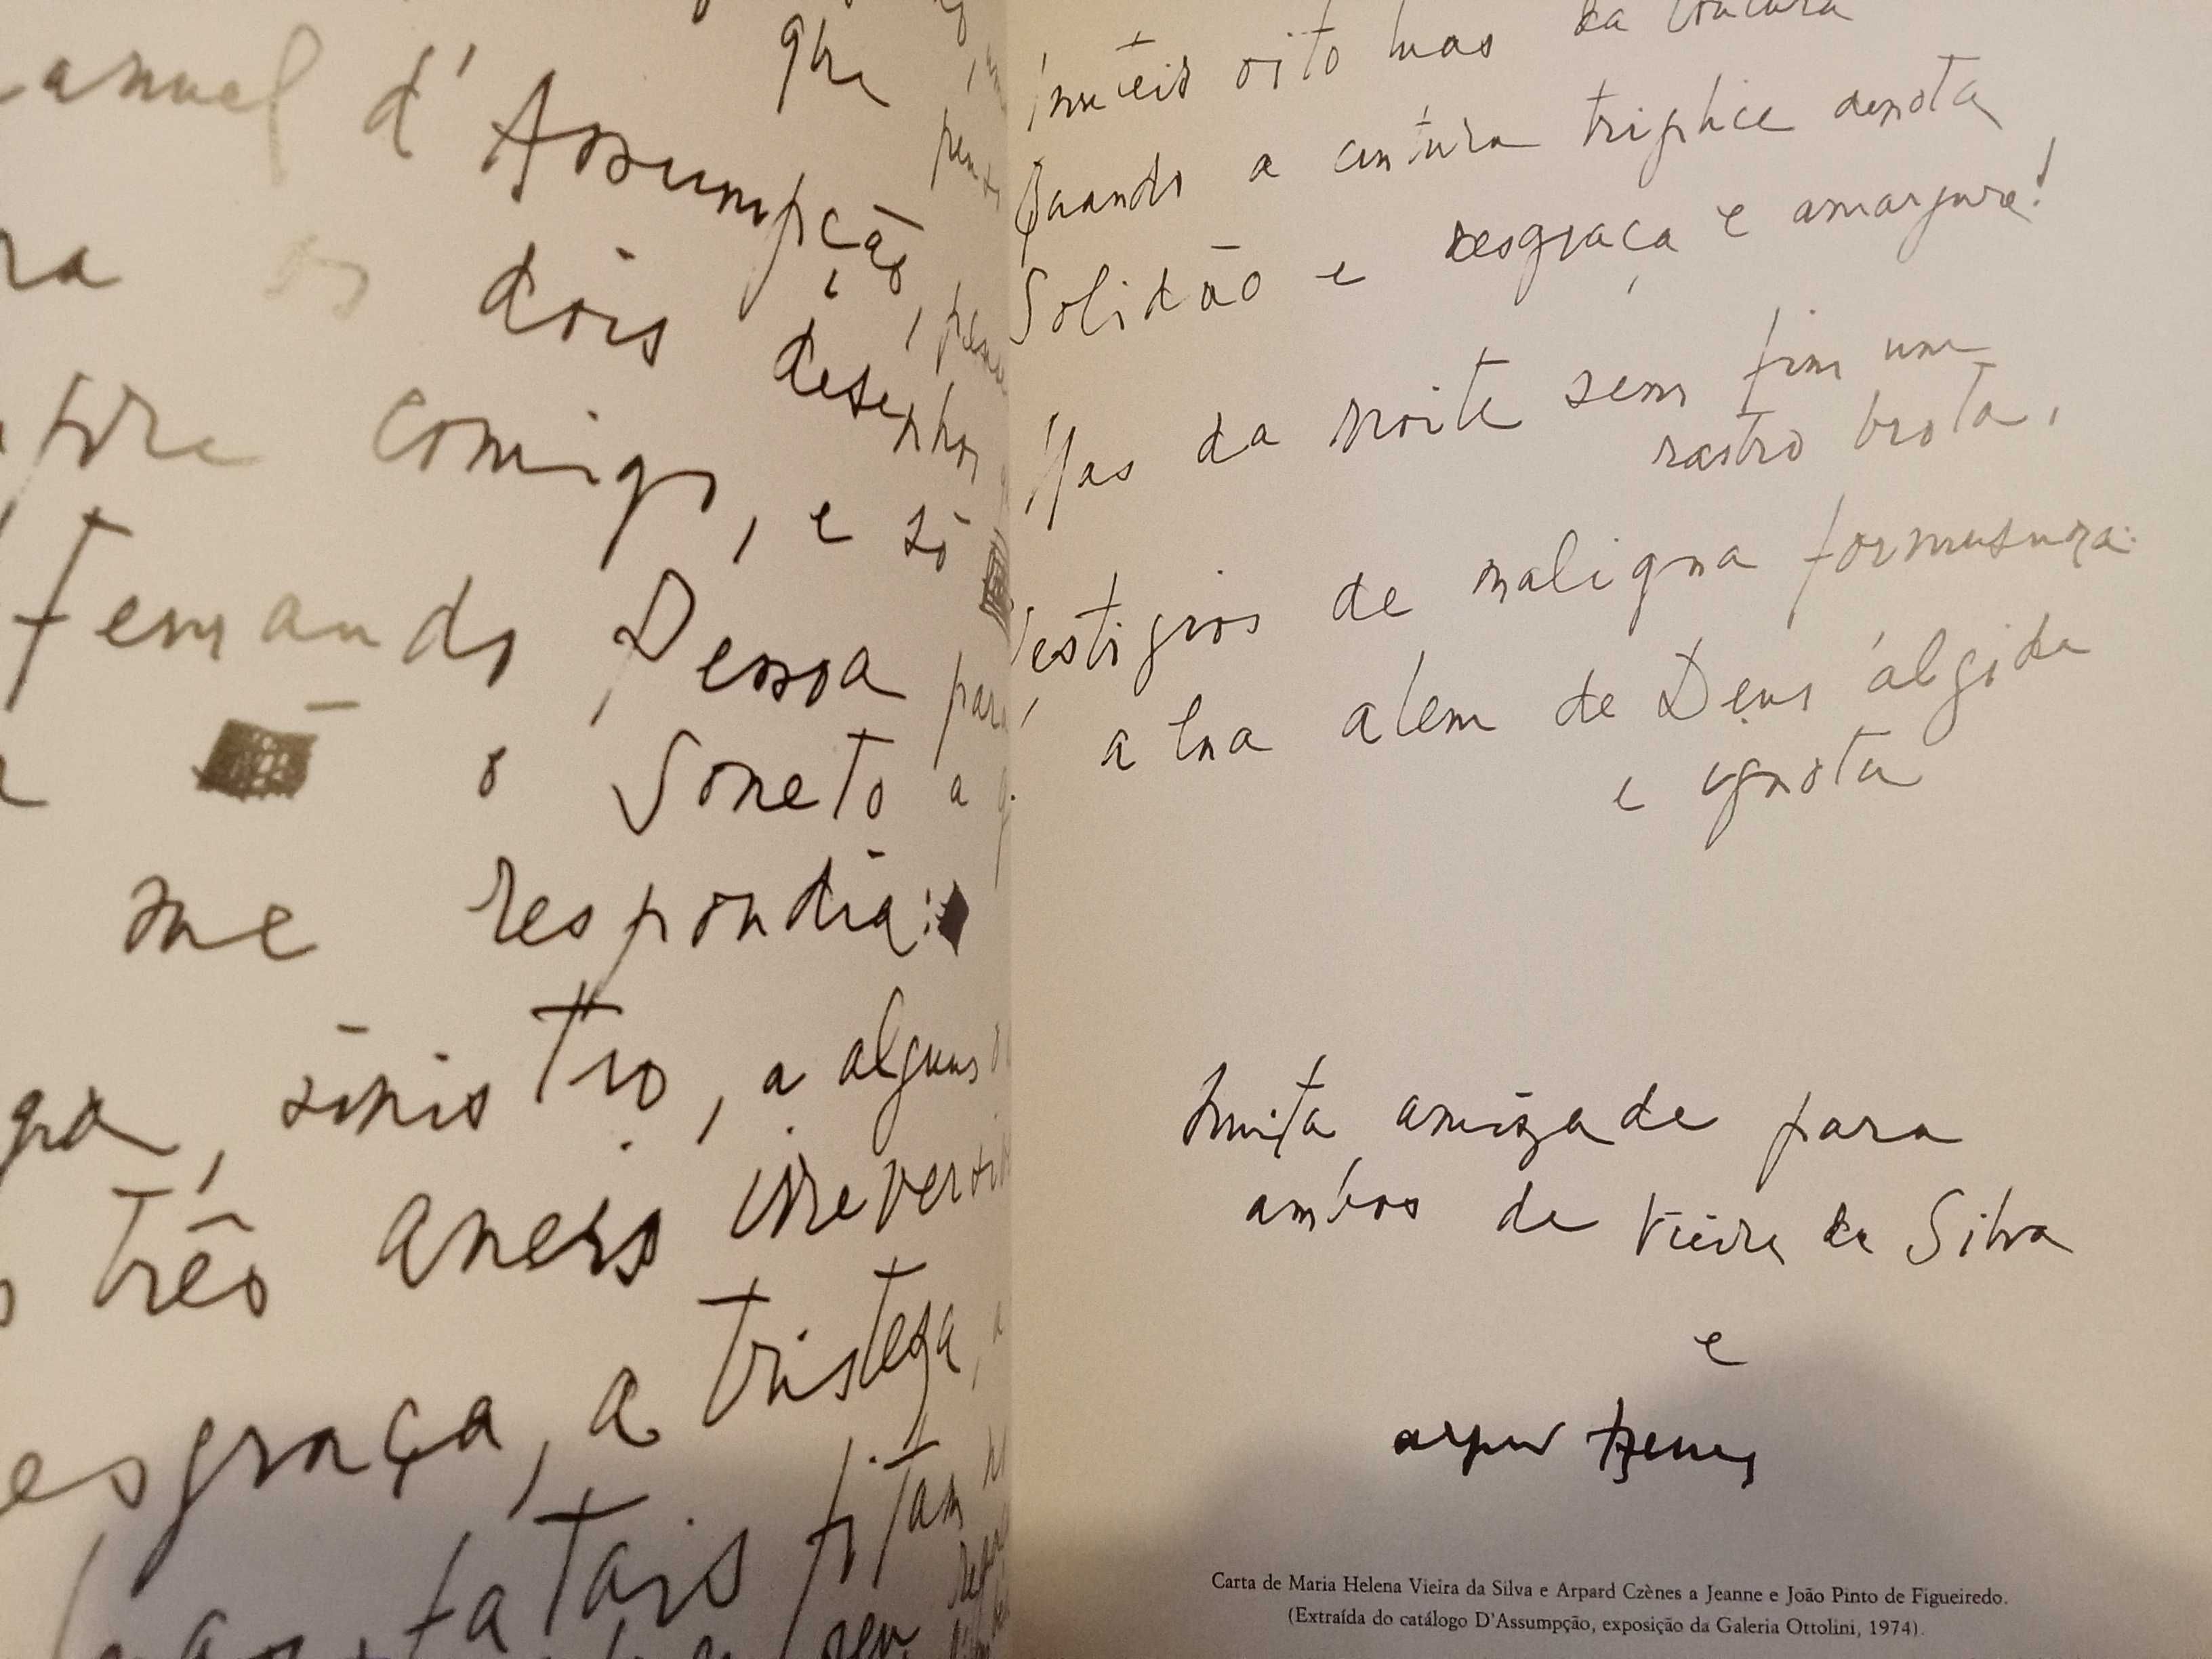 que
anuel d'Assumpção,
ra os dois desenhos
pre comigo, e só
Fernando Pessoa
o Soneto
me respondia:
sinistro, a alguns
três aneis
esgraça, a tristeza,
fatais fitam
seu
inuteis oito luas da loucura
Quando a cintura triplice denota
Solidão e desgraça e amargura!
Mas da noite sem fim um
rastro brota,
Vestigios de maligna formusura:
a lua alem de Deus álgida
e ignota
Muita amizade para
ambos de Vieira da Silva
e
arpad szenes
Carta de Maria Helena Vieira da Silva e Arpard Czènes a Jeanne e João Pinto de Figueiredo.
(Extraída do catálogo D'Assumpção, exposição da Galeria Ottolini, 1974).